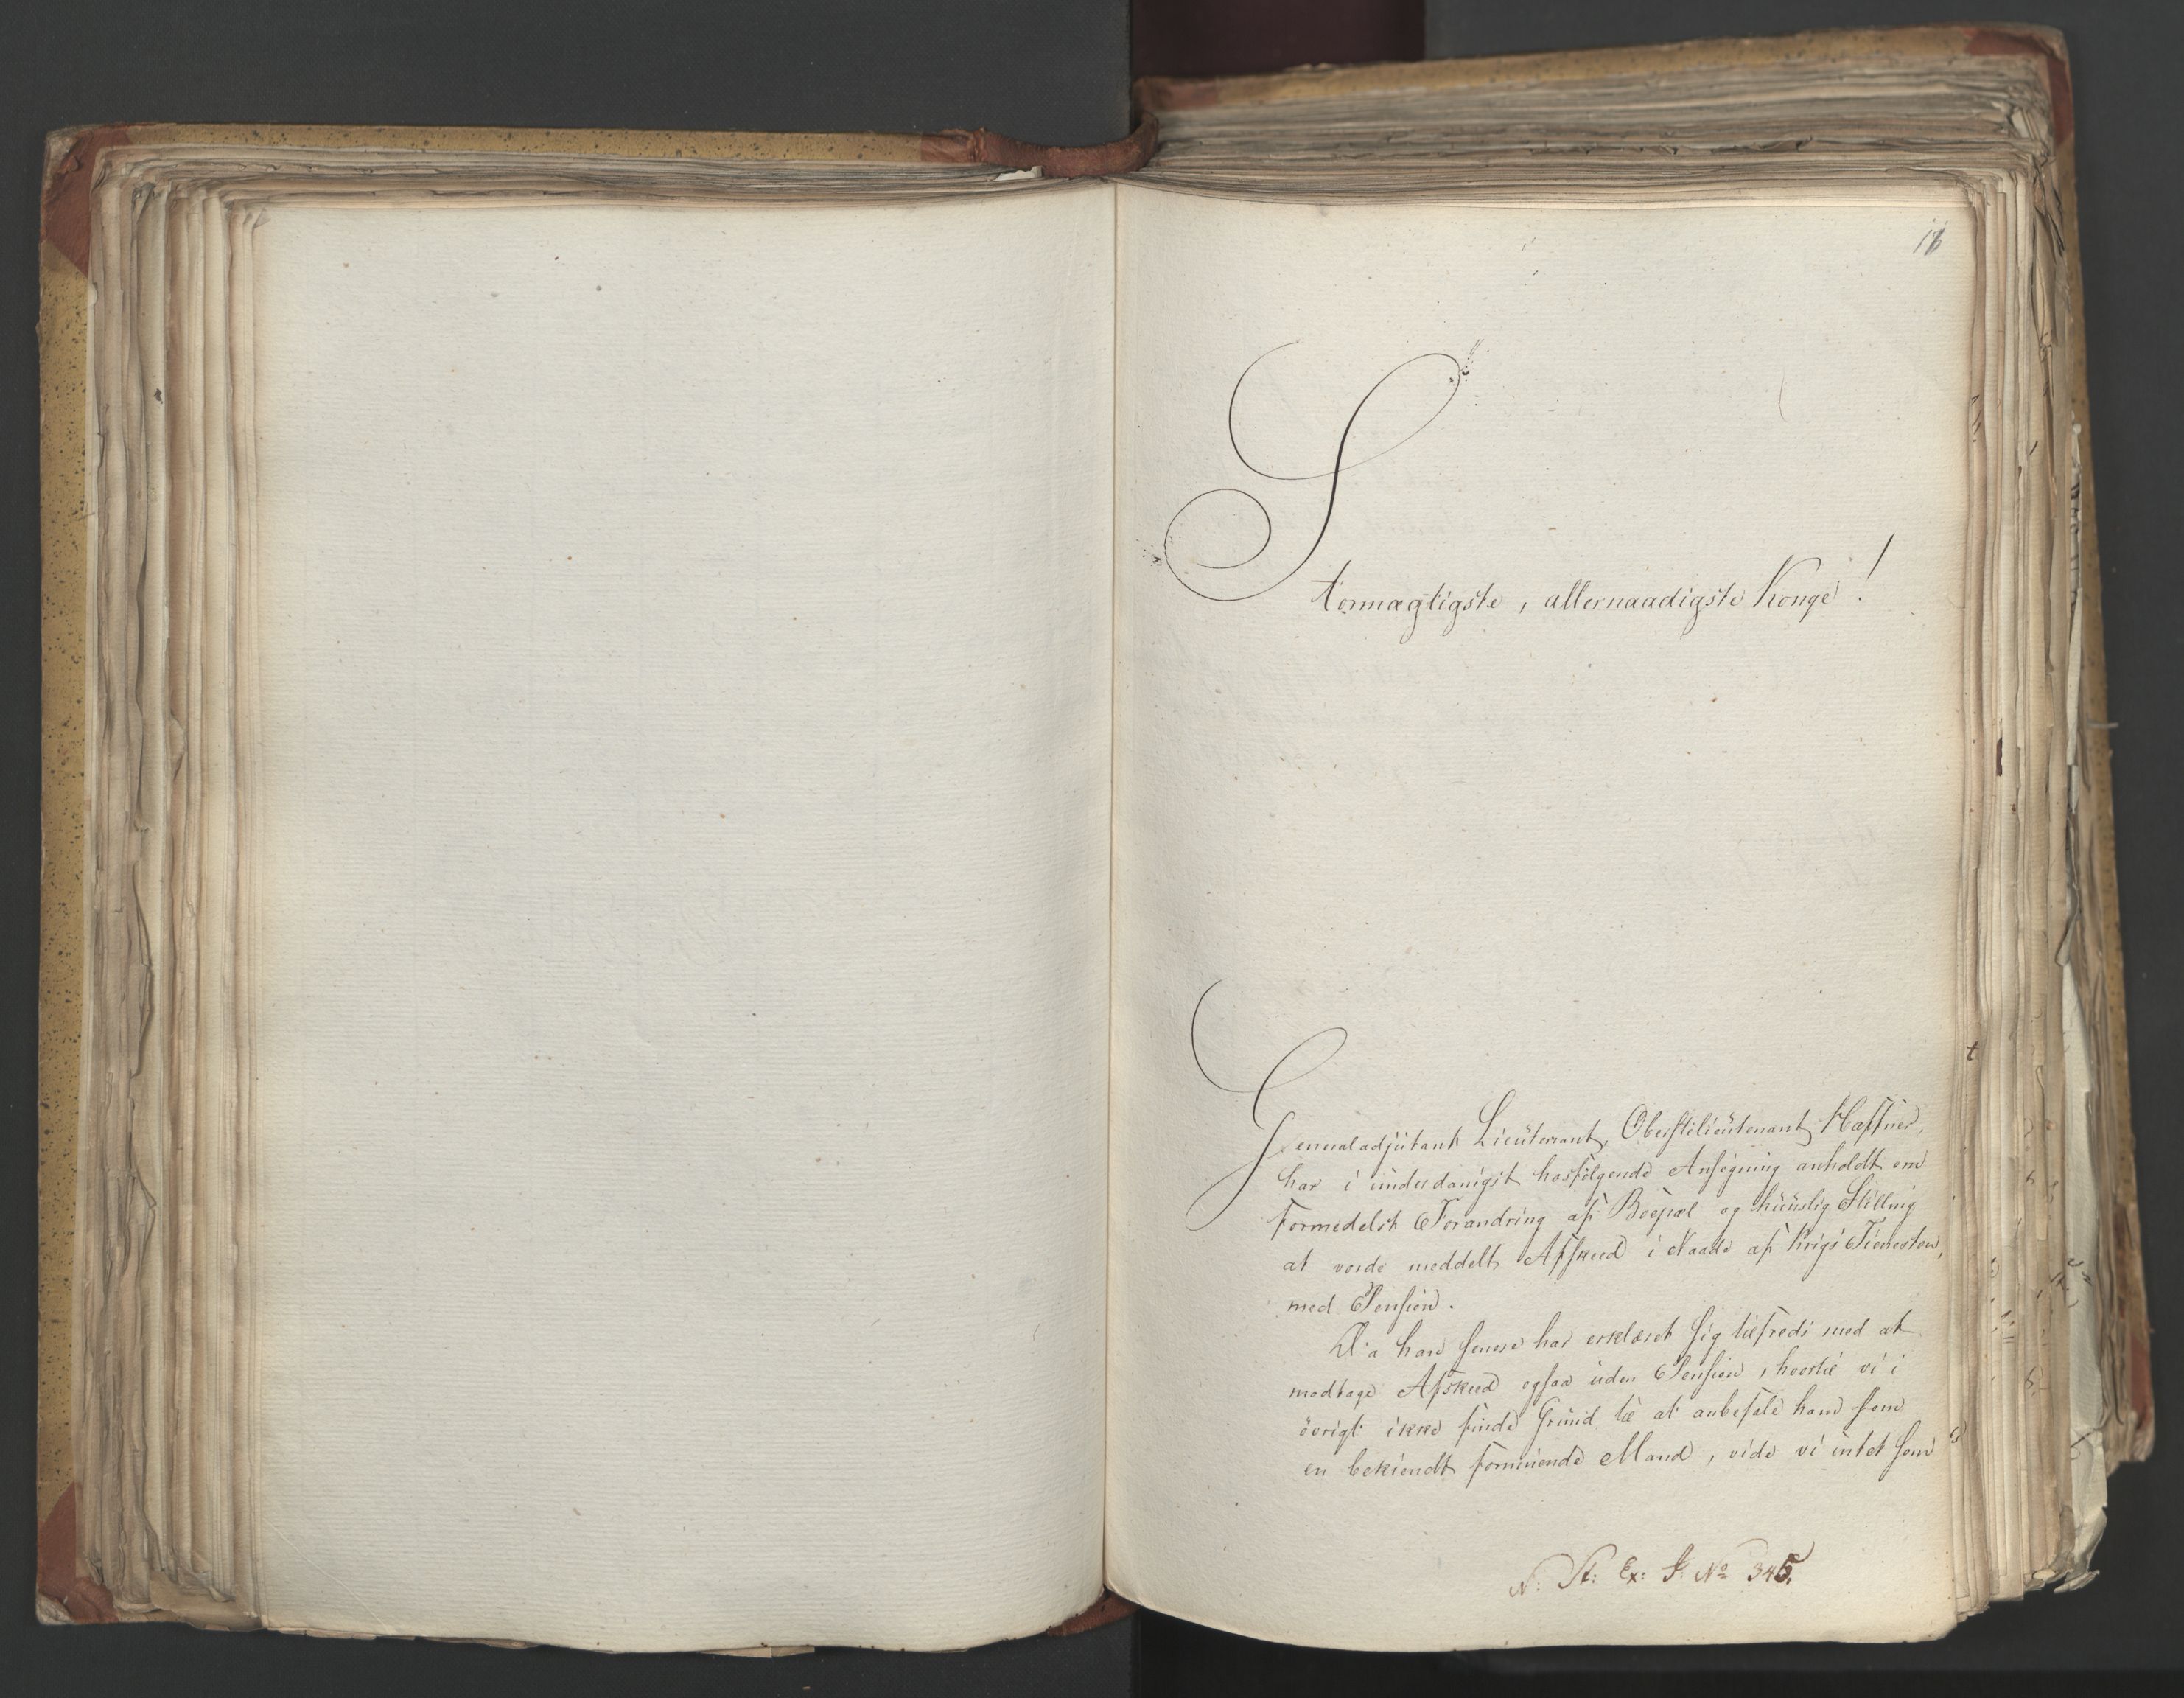 18
Stormægtigste, allernaadigste Konge!
Generaladjutant Lieutenant, Oberstlieutenant Haffner,
har i underdanigst hosfølgende Ansøgning anholdt om
formedelst Forandring af Boepæl og huuslig Stilling
at vorde meddelt Afskeed i Naade af Krigs Tienesten,
med Pension.
Da han senere har erklæret sig tilfreds med at
modtage Afskeed ogsaa uden Pension, hvortil vi i
øvrigt ikke finde Grund til at anbefale ham som
en bekiendt formuende Mand, vide vi intet som
N: St: Ex: J: No 345.